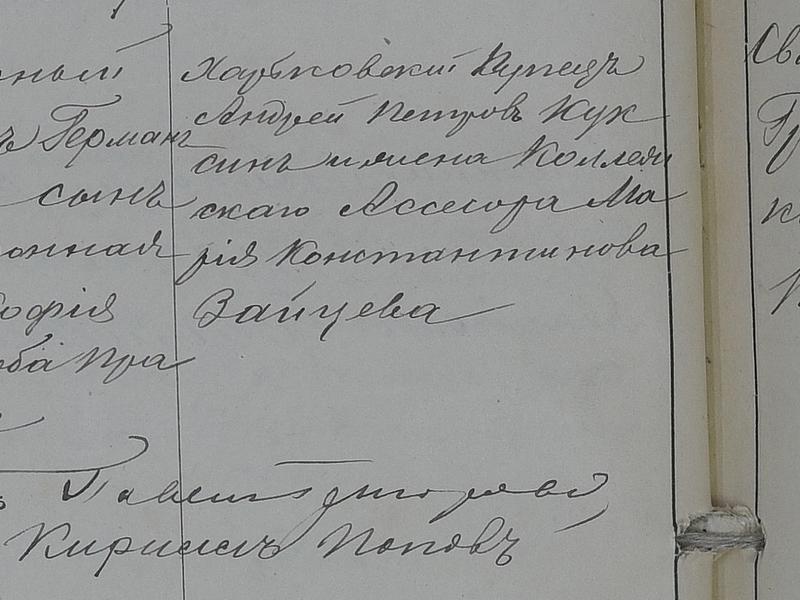 ный
Герман
сынъ
онная
офія
ба пра
Харьковскій Купецъ
Андрей Петровъ Кук
синъ и жена Коллеж
скаго Ассесора Ма
рія Константинова
Зайцева
Павелъ Григоровъ
Кириллъ Поповъ
Св